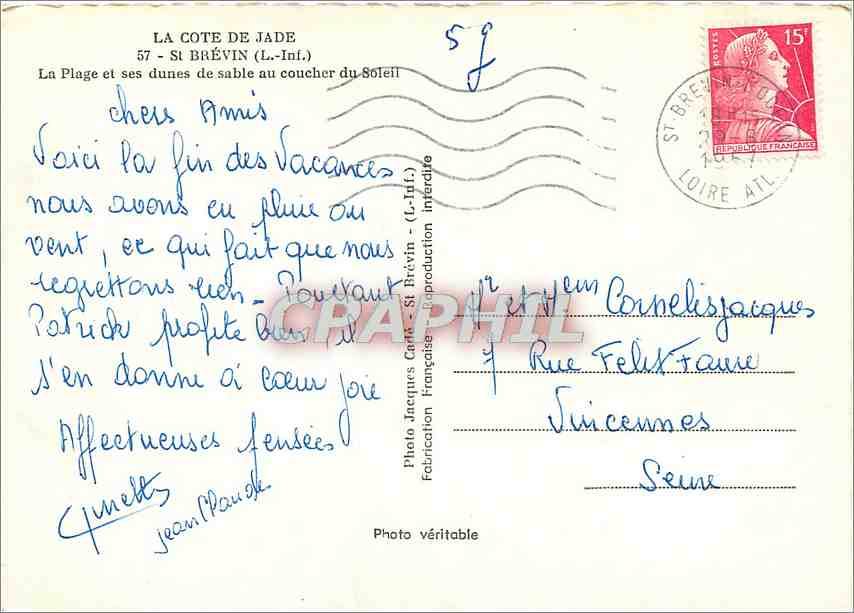 LA COTE DE JADE
57 - St BRÉVIN (L.-Inf.)
La Plage et ses dunes de sable au coucher du Soleil
5 g
POSTES
15F
REPUBLIQUE FRANÇAISE
ST BREVIN
1957
LOIRE ATL.
chers Amis
Voici la fin des Vacances
nous avons eu pluie ou
vent, ce qui fait que nous
regrettons rien _ Pourtant
Patrick profite bien, il
s'en donne à cœur joie
Affectueuses pensées
Ginette
jean Claude
Photo Jacques Carlé - St Brévin - (L-Inf.)
Fabrication Française Reproduction interdite
CPAPHIL
Mr et Mem Cornelis jacques
7 Rue Felix Faure
Vincennes
Seine
Photo véritable